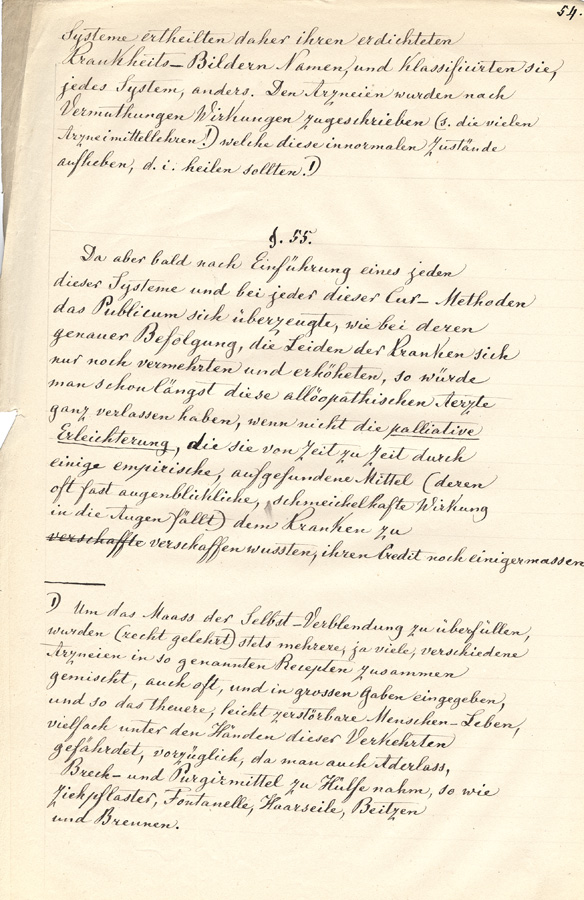 54.
Systeme ertheilten daher ihren erdichteten
Krankheits-Bildern Namen, und klassifiizirten sie,
jedes System, anders. Den Arzneien wurden nach
Vermuthungen Wirkungen zugeschrieben (s. die vielen
Arzneimittellehren!) welche diese innormalen Zustände
aufheben, d. i. heilen sollten. 1)
§. 55.
Da aber bald nach Einführung eines jeden
dieser Systeme und bei jeder dieser Cur-Methoden
das Publicum sich überzeugte, wie bei deren
genauer Befolgung, die Leiden der Kranken sich
nur noch vermehrten und erhöheten, so würde
man schon längst diese allöopathischen Aerzte
ganz verlassen haben, wenn nicht die palliative
Erleichterung, die sie von Zeit zu Zeit durch
einige empirische, aufgefundene Mittel (deren
oft fast augenblickliche, schmeichelhafte Wirkung
in die Augen fällt) dem Kranken zu
verschaffte verschaffen wussten, ihren Credit noch einigermassen
1) Um das Maass der Selbst-Verblendung zu überfüllen,
wurden (recht gelehrt) stets mehrere, ja viele, verschiedene
Arzneien in so genannten Recepten zusammen
gemischt, auch oft, und in grossen Gaben eingegeben,
und so das theuere, leicht zerstörbare Menschen-Leben,
vielfach unter den Händen dieser Verkehrten
gefährdet, vorzüglich, da man auch Aderlass,
Brech- und Purgirmittel zu Hülfe nahm, so wie
Ziehpflaster, Fontanelle, Haarseile, Beitzen
und Brennen.